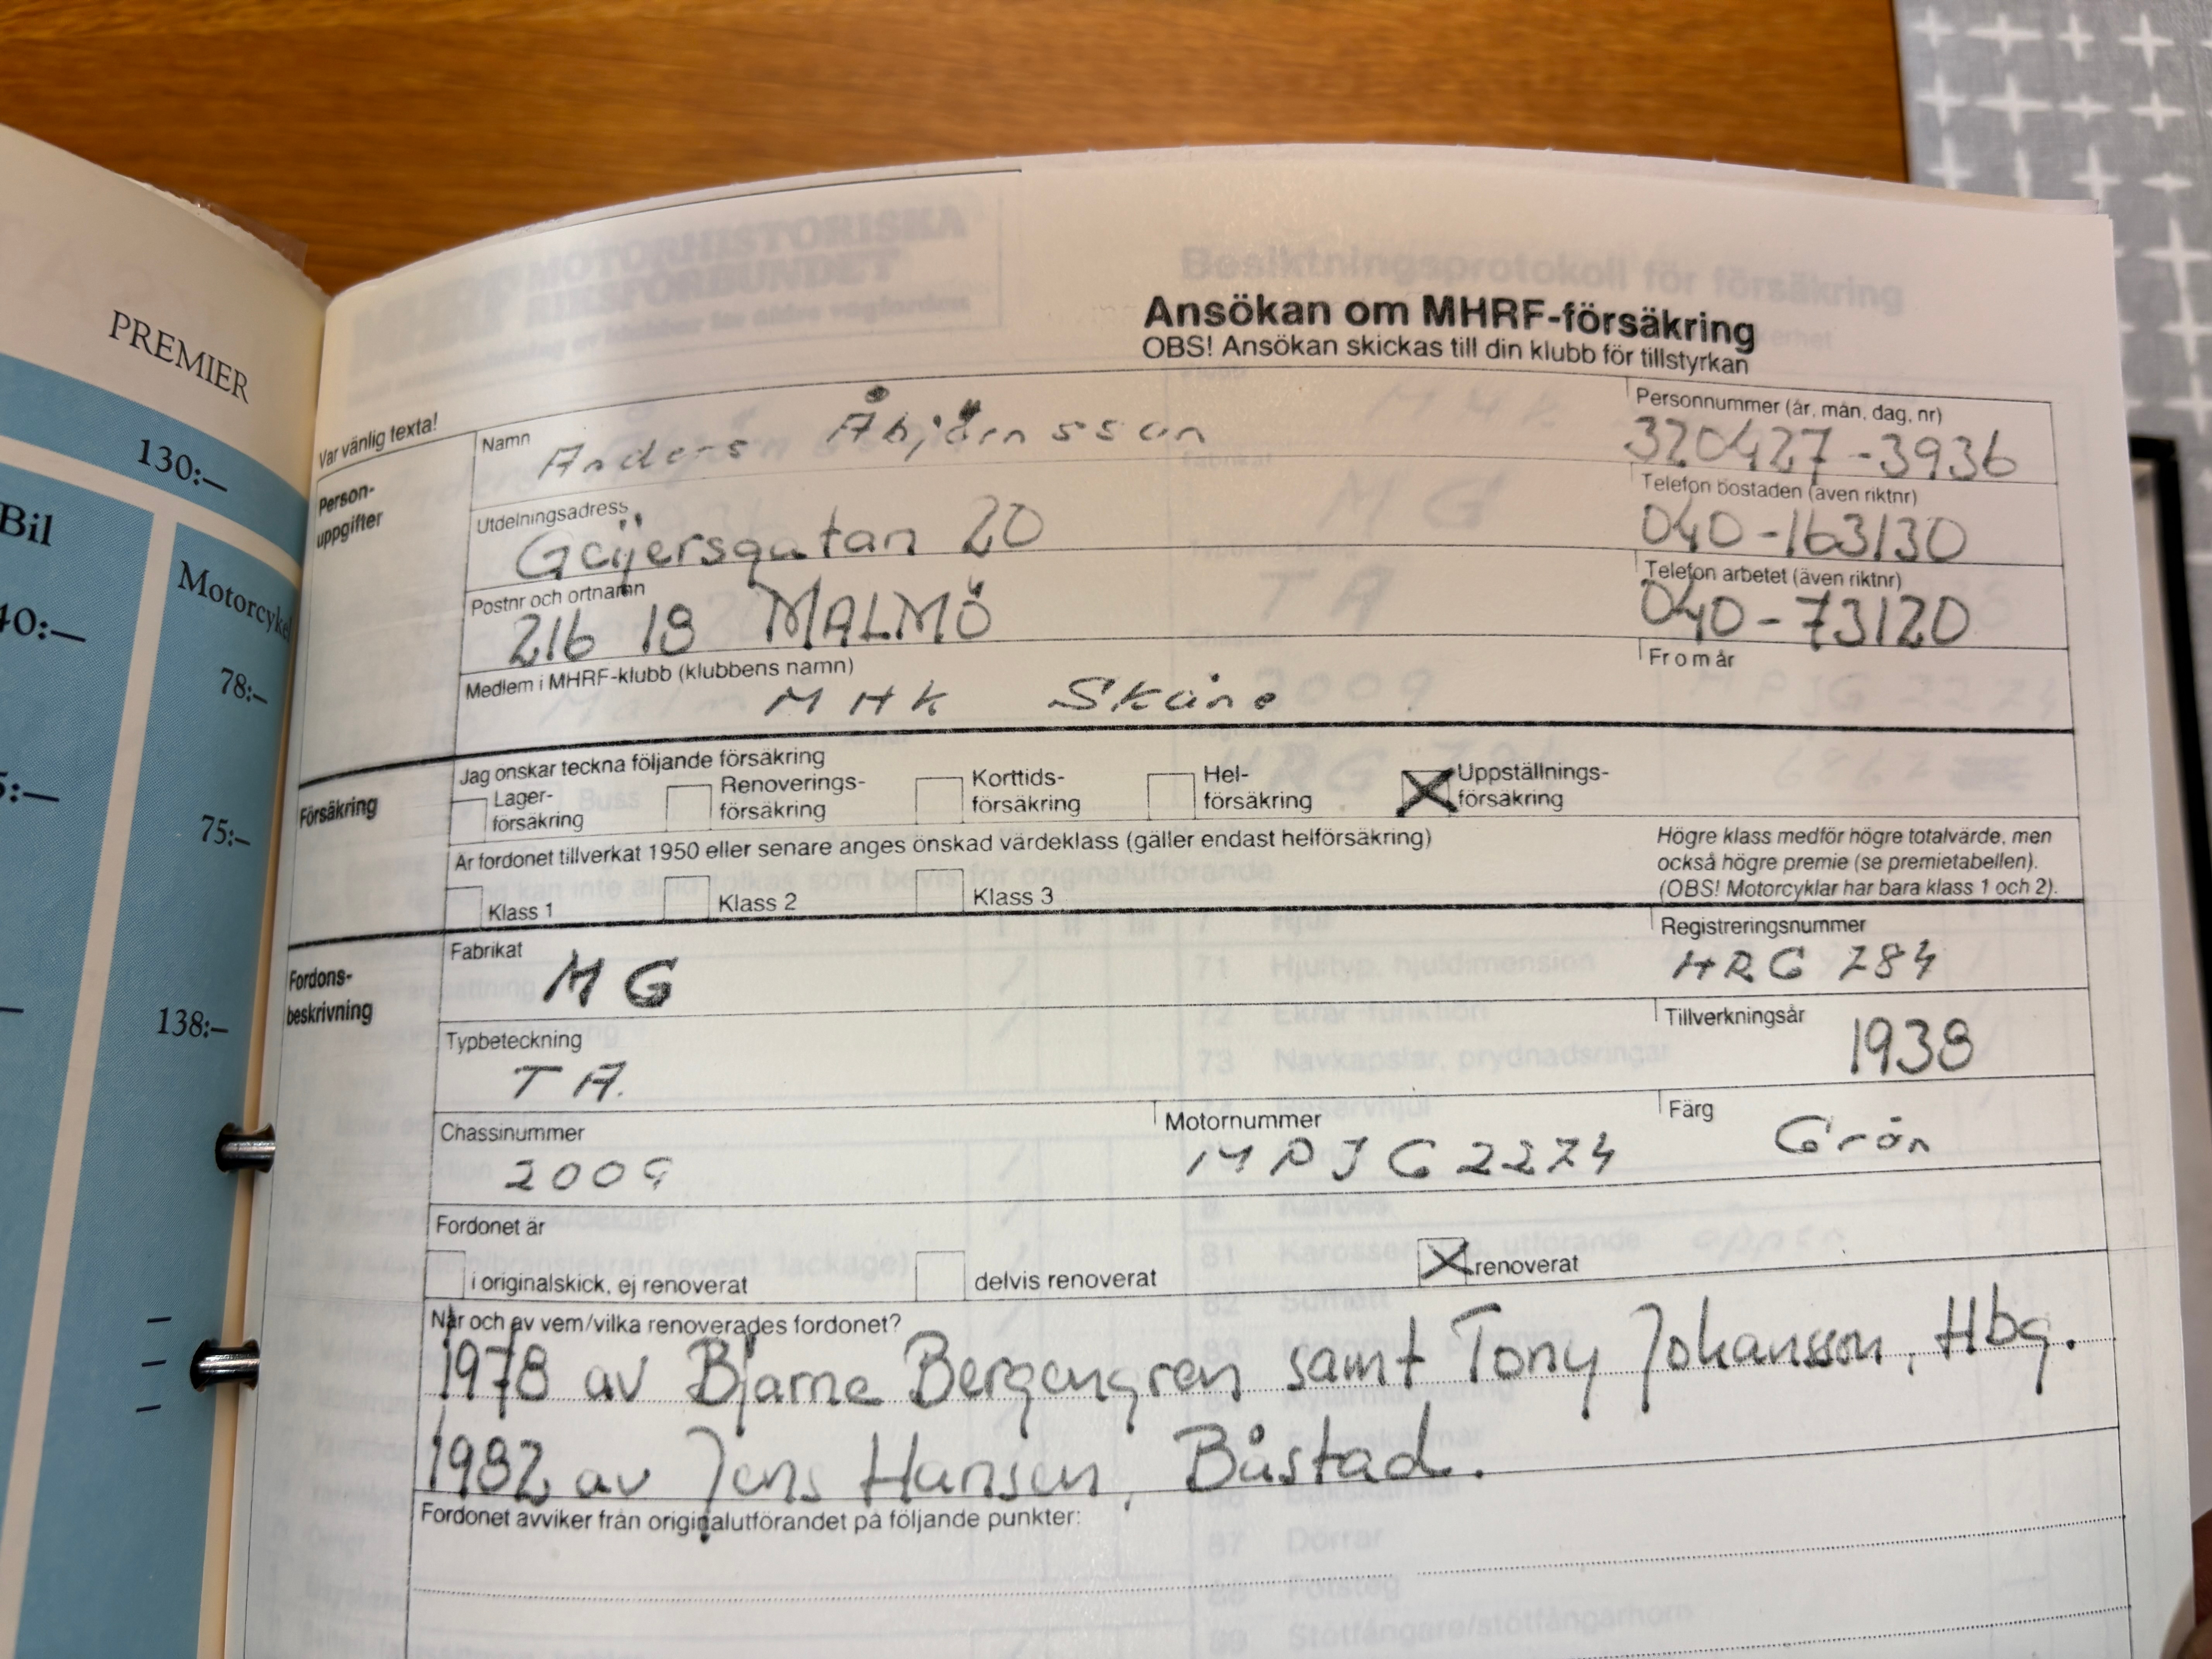 PREMIER
130:—
Bil
Motorcykel
40:—
78:—
5:—
75:—
138:—
Ansökan om MHRF-försäkring
OBS! Ansökan skickas till din klubb för tillstyrkan
Var vänlig texta!
Person-
uppgifter
Namn
Anders Åbjörnsson
Personnummer (år, mån, dag, nr)
320427-3936
Utdelningsadress
Geijersgatan 20
Telefon bostaden (även riktnr)
040-163130
Postnr och ortnamn
216 18 MALMÖ
Telefon arbetet (även riktnr)
040-73120
Medlem i MHRF-klubb (klubbens namn)
MHK Skåne
Fr o m år
Försäkring
Jag önskar teckna följande försäkring
Lager-
försäkring
Renoverings-
försäkring
Korttids-
försäkring
Hel-
försäkring
Uppställnings-
försäkring
Är fordonet tillverkat 1950 eller senare anges önskad värdeklass (gäller endast helförsäkring)
Klass 1
Klass 2
Klass 3
Högre klass medför högre totalvärde, men
också högre premie (se premietabellen).
(OBS! Motorcyklar har bara klass 1 och 2).
Fordons-
beskrivning
Fabrikat
MG
Registreringsnummer
HRG 784
Typbeteckning
TA.
Tillverkningsår
1938
Chassinummer
2009
Motornummer
MPJG 2274
Färg
Grön
Fordonet är
i originalskick, ej renoverat
delvis renoverat
renoverat
När och av vem/vilka renoverades fordonet?
1978 av Bjarne Bergengren samt Tony Johansson, Hbg.
1982 av Jens Hansen, Båstad.
Fordonet avviker från originalutförandet på följande punkter: